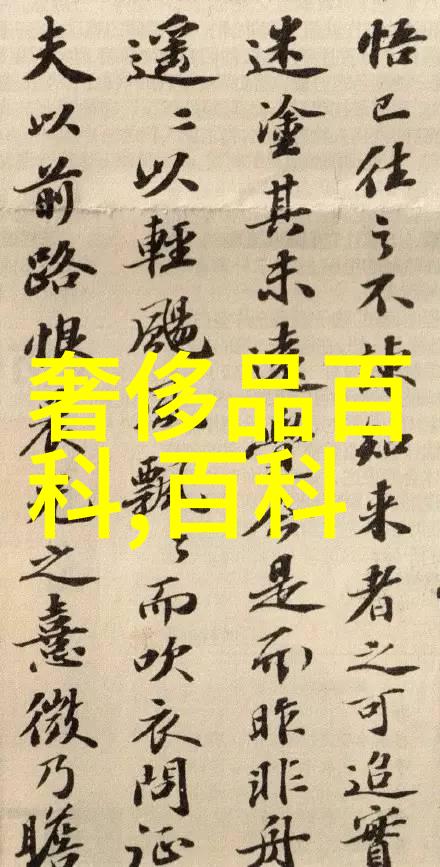 悟已往之不諫知来者之可追實
迷塗其未遠覺今是而昨非舟
遥〻以輕颺風飄〻而吹衣問征
夫以前路恨晨光之熹微乃瞻
奢侈品百
科,百科